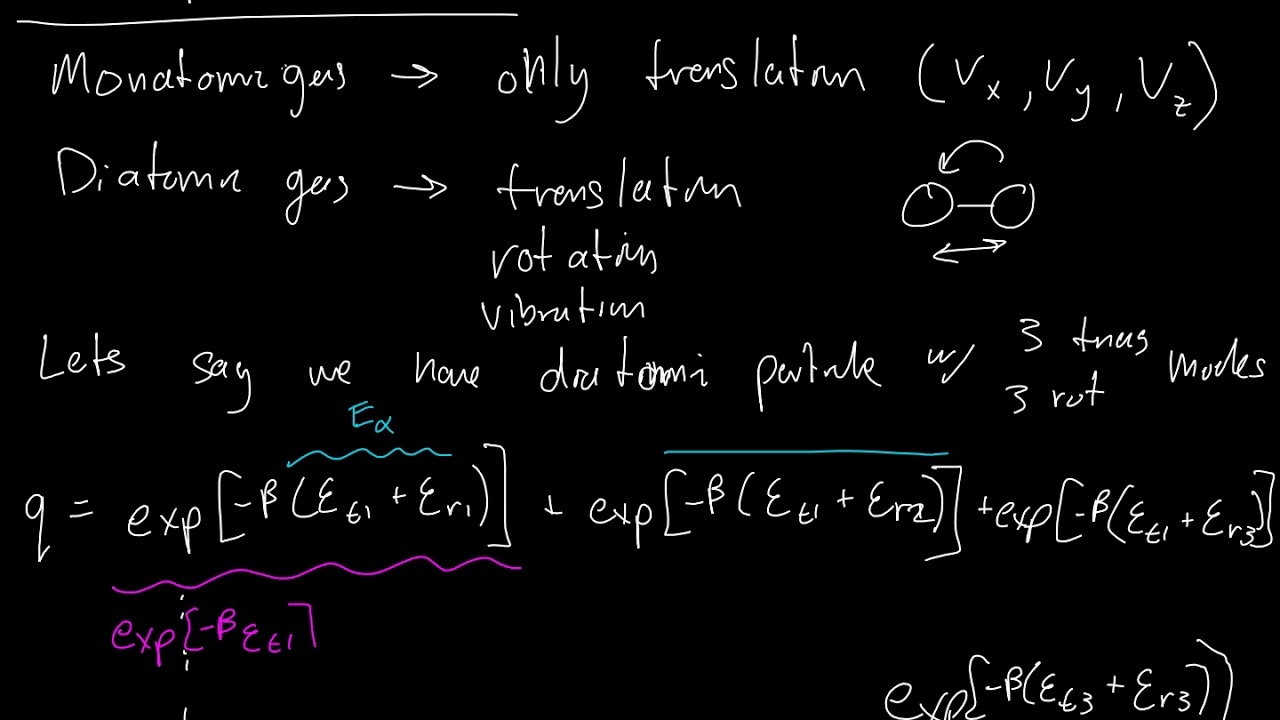 Monatomic gas → only translation (Vx, Vy, Vz)
Diatomic gas → translation
rotation
vibration
Lets say we have diatomic particle w/ 3 trans modes
3 rot
Eα
q = exp[-β(εt1 + εr1)] + exp[-β(εt1 + εr2)] + exp[-β(εt1 + εr3)]
exp[-βεt1]
exp[-β(εt3 + εr3))